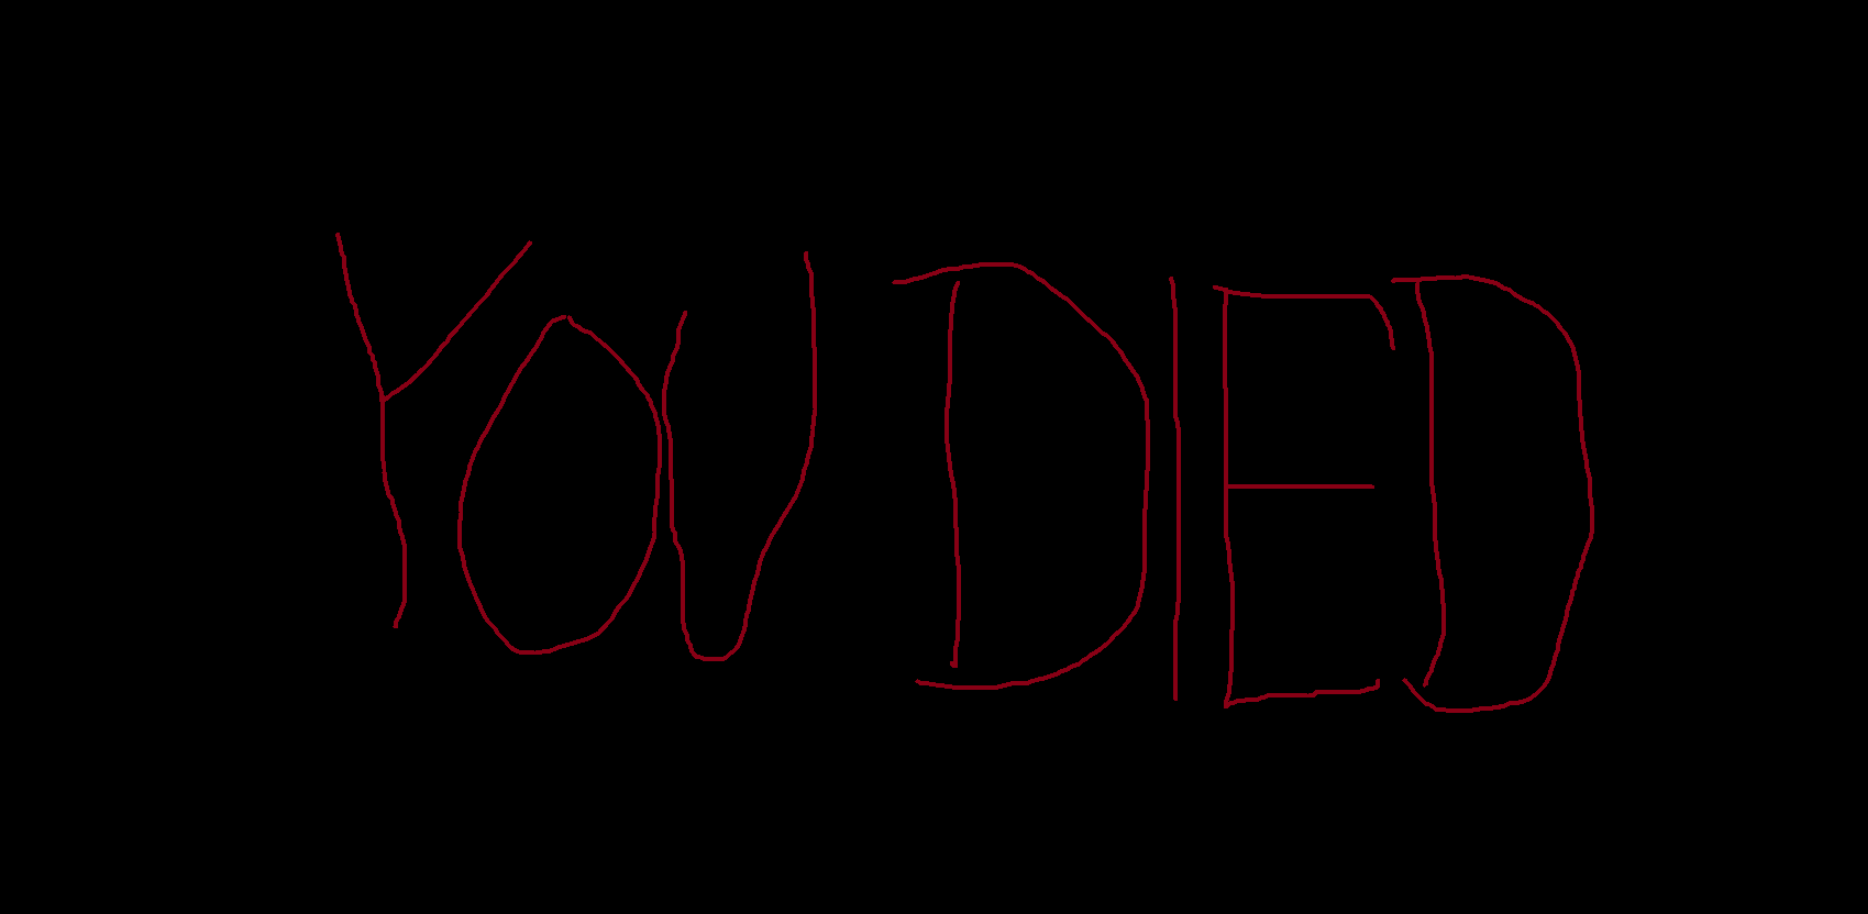 YOU DIED